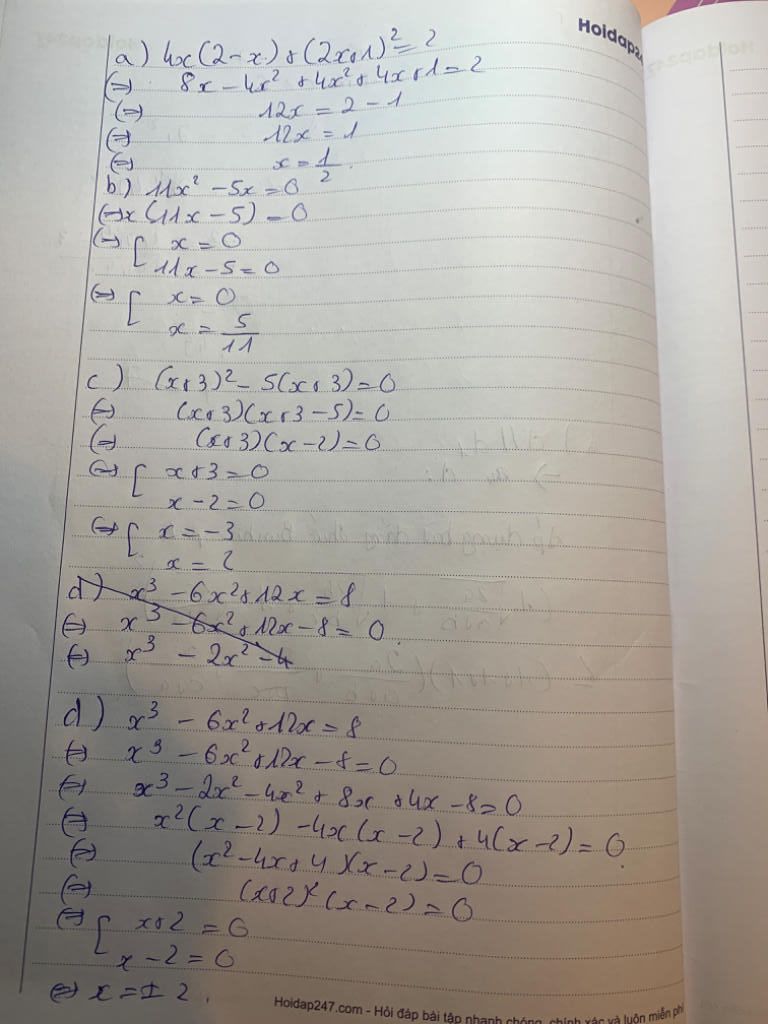 Hoidap24
a) 4x(2-x)+(2x+1)²=2
(=) 8x-4x²+4x²+4x+1=2
(=) 12x=2-1
(=) 12x=1
(=) x=1/2.
b) 11x²-5x=0
(=) x(11x-5)=0
(=) [ x=0
11x-5=0
(=) [ x=0
x=5/11
c) (x+3)²-5(x+3)=0
(=) (x+3)(x+3-5)=0
(=) (x+3)(x-2)=0
(=) [ x+3=0
x-2=0
(=) [ x=-3
x=2
d) x³-6x²+12x=8
(=) x³-6x²+12x-8=0.
(=) x³-2x²-4
d) x³-6x²+12x=8
(=) x³-6x²+12x-8=0
(=) x³-2x²-4x²+8x+4x-8=0
(=) x²(x-2)-4x(x-2)+4(x-2)=0.
(=) (x²-4x+4)(x-2)=0
(=) (x+2)²(x-2)=0
(=) [ x+2=0
x-2=0
(=) x=±2.
Hoidap247.com - Hỏi đáp bài tập nhanh chóng, chính xác và luôn miễn phí